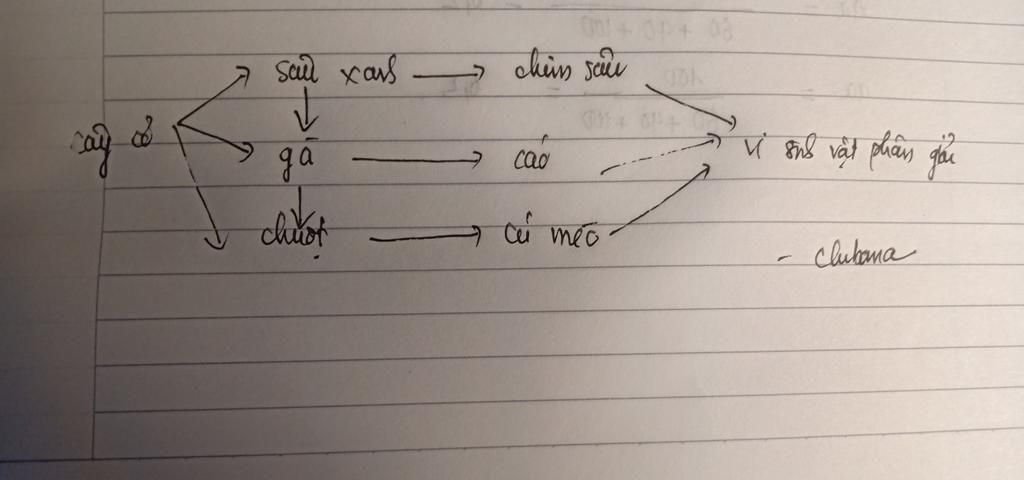 sâu xanh → chim sâu
cây cỏ gà → cáo vi sinh vật phân giải
chuột → cú mèo
- clubama